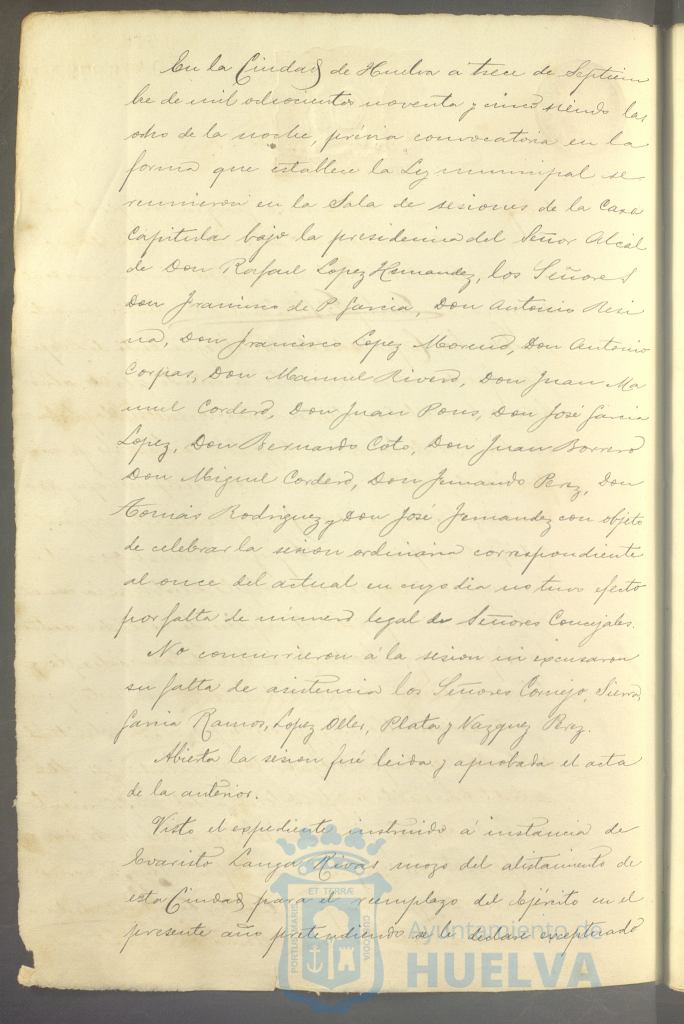 En la Ciudad de Huelva a trece de Septiem
bre de mil ochocientos noventa y cinco siendo las
ocho de la noche, prévia convocatoria en la
forma que establece la Ley municipal se
reunieron en la Sala de sesiones de la Casa
Capitular bajo la presidencia del Señor Alcal
de Don Rafael Lopez Hernandez, los Señores
Don Francisco de P. Garcia, Don Antonio Resi
na, Don Francisco Lopez Moreno, Don Antonio
Corpas, Don Manuel Rivero, Don Juan Ma
nuel Cordero, Don Juan Pons, Don José Garcia
Lopez, Don Bernardo Coto, Don Juan Borrero
Don Miguel Cordero, Don Fernando Perez, Don
Tomás Rodriguez y Don José Fernandez con objeto
de celebrar la sesion ordinaria correspondiente
al once del actual en cuyo dia no tuvo efecto
por falta de número legal de Señores Concejales.
No concurrieron á la sesion ni excusaron
su falta de asistencia los Señores Cornejo, Sierra,
Garcia Ramos, Lopez Oller, Plata y Vazquez Perez.
Abierta la sesion fué leida y aprobada el acta
de la anterior.
Visto el expediente instruido á instancia de
Evaristo Langa Rivas mozo del alistamiento de
esta Ciudad para el reemplazo del Ejército en el
presente año pretendiendo se le declare exceptuado
ET TERRÆ
PORTUS MARIS
CUSTODIA
Ayuntamiento de
HUELVA